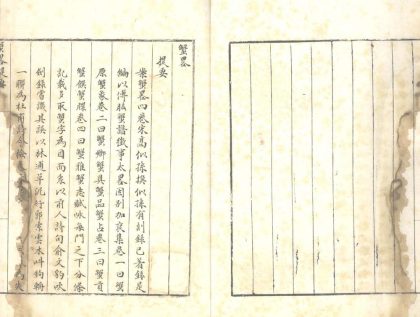 蟹略
提要
案蟹略四卷宋高似孫撰似孫有剡錄已著錄是
編以傅肱蟹譜徵事太略因別加裒集卷一曰蟹
原蟹象卷二曰蟹鄉蟹具蟹品蟹占卷三曰蟹貢
蟹饌蟹牒卷四曰蟹雅蟹志賦咏每門之下分條
記載多取蟹字為目而系以前人詩句俞文豹吹
劍錄嘗譏其誤以林逋草泥行郭索雲木叫鉤輈
一聯為杜甫詩今檢